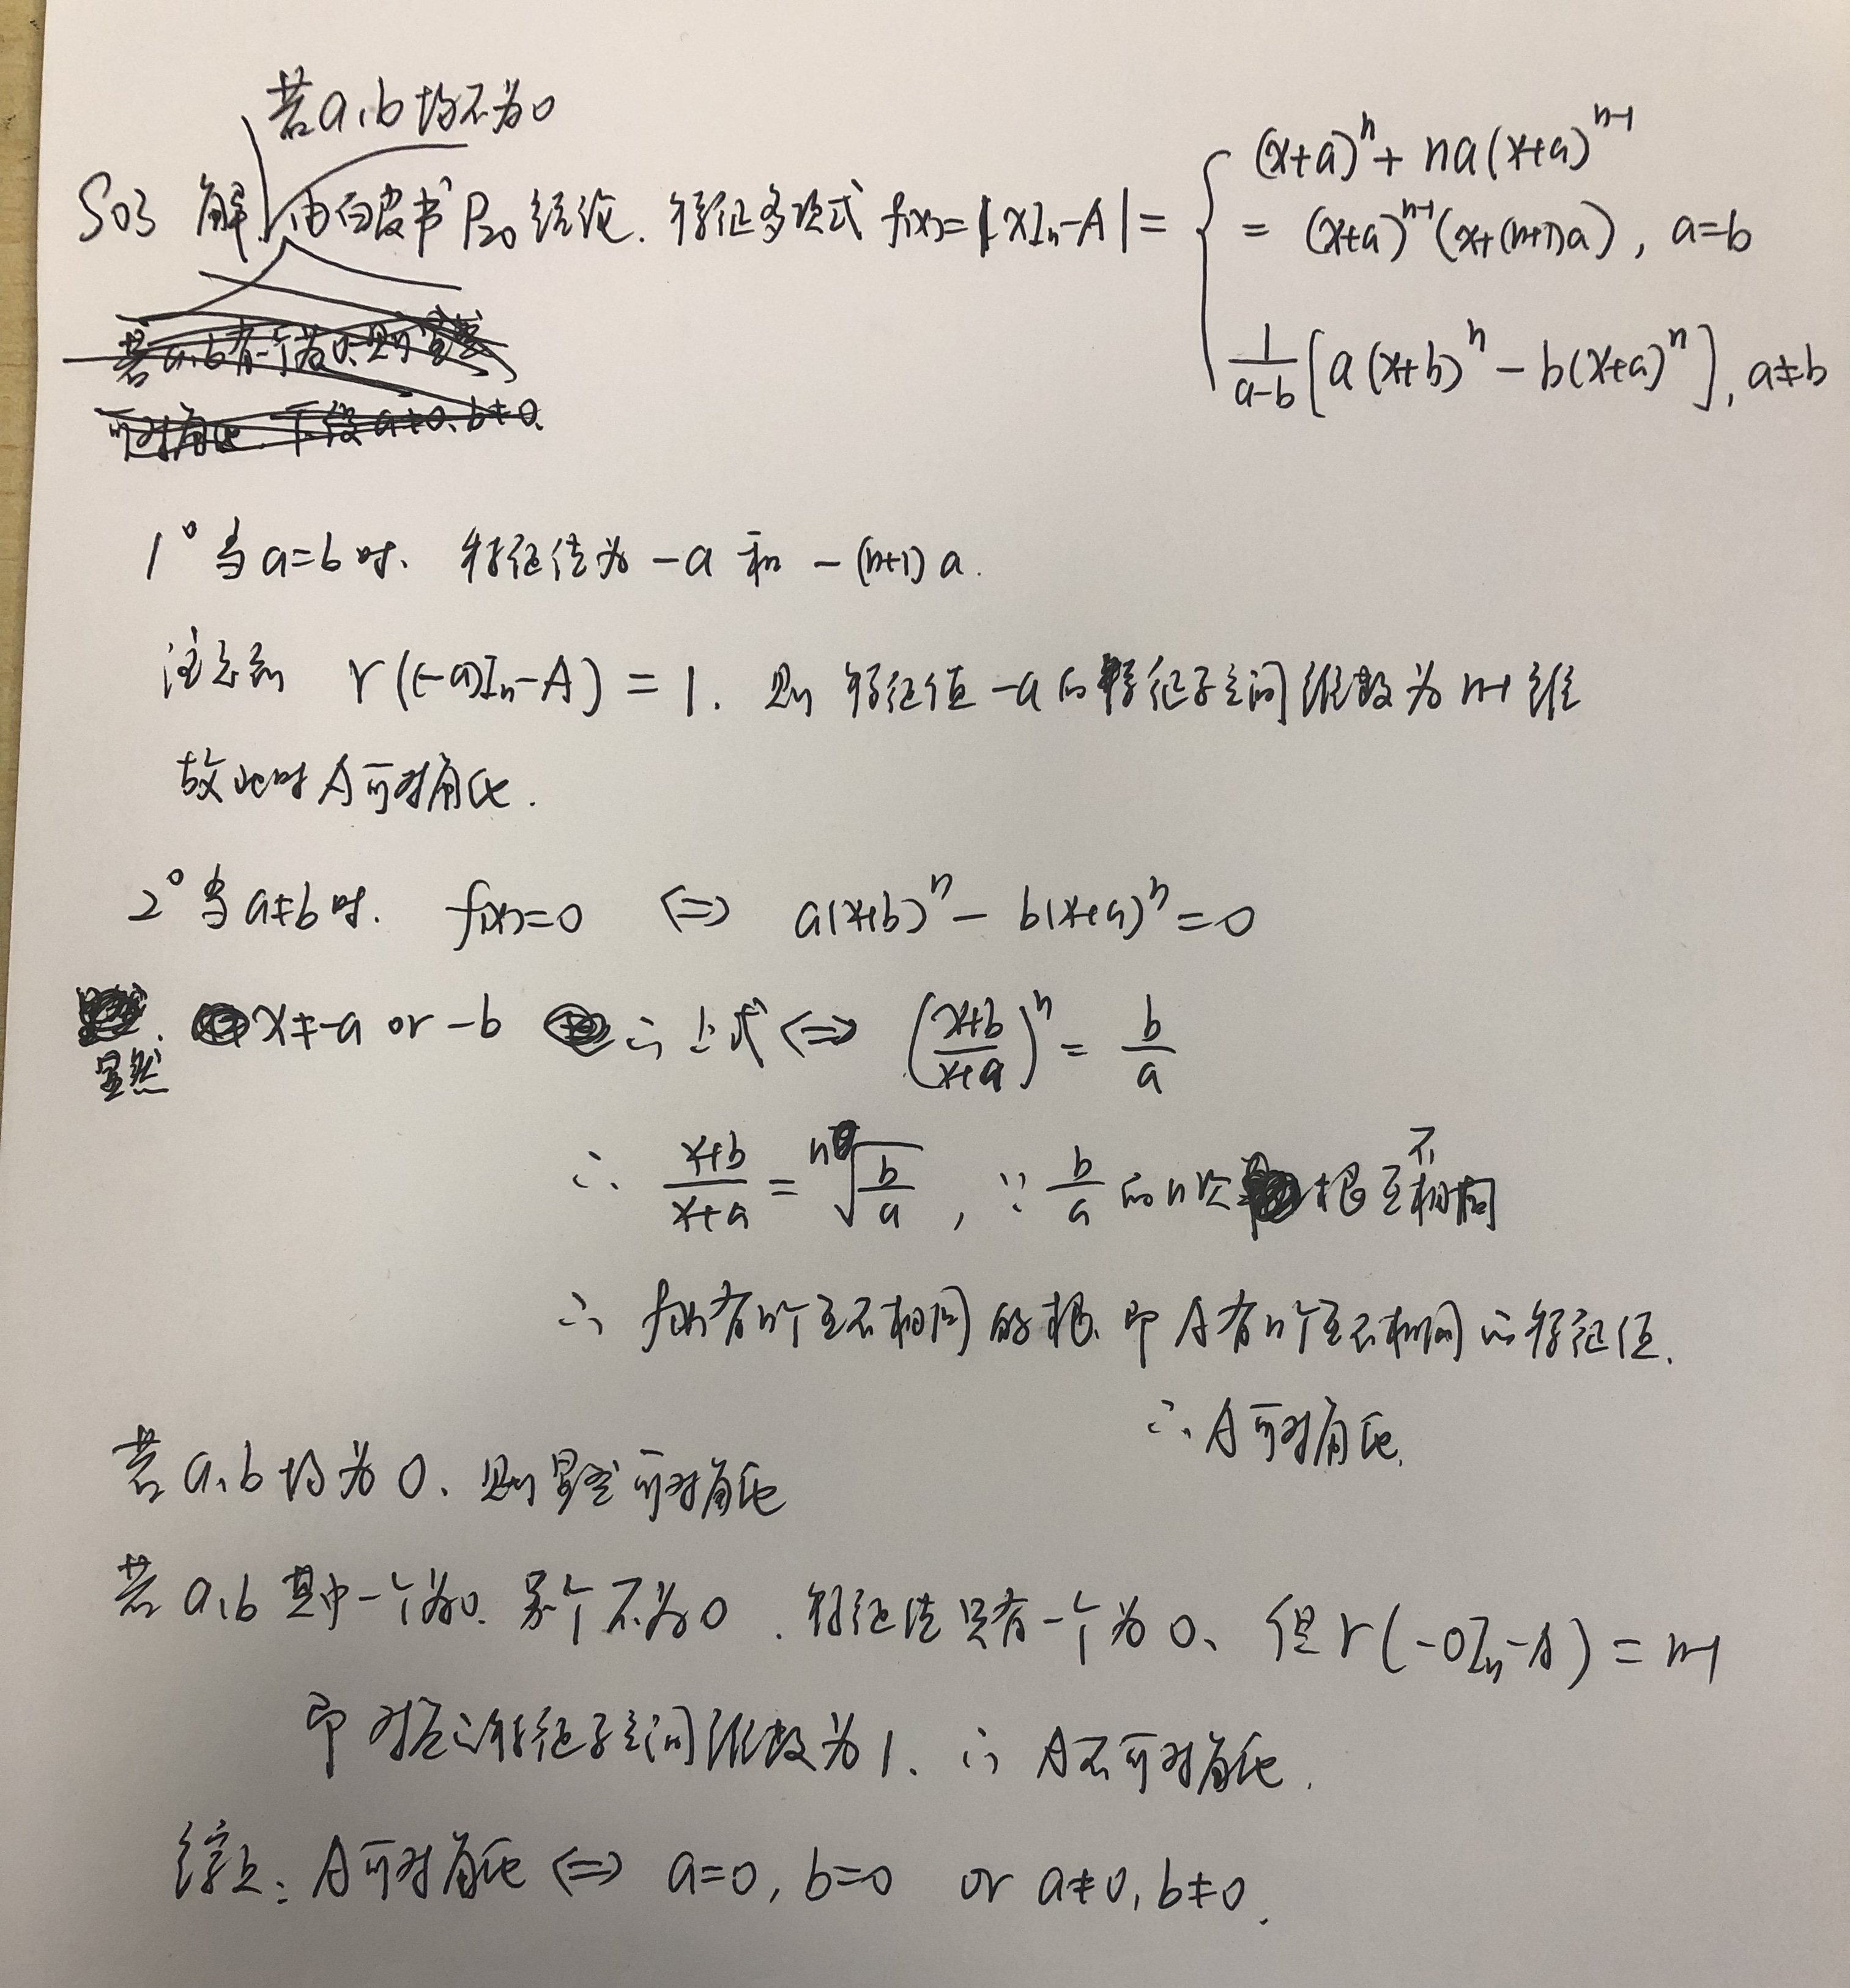 若a,b均不为0
S03 解 由白皮书P20结论. 特征多项式 f(x)=|xIn-A|= { (x+a)^n + na(x+a)^{n-1}
= (x+a)^{n-1}(x+(n+1)a), a=b
1/(a-b) [a(x+b)^n - b(x+a)^n], a≠b
若a,b有一个为0.则显然
可对角化. 下设a≠0.b≠0.
1° 当a=b时. 特征值为 -a 和 -(n+1)a.
注意到 r((-a)In-A)=1. 则 特征值 -a的特征子空间维数为n-1维
故此时A可对角化.
2° 当a≠b时. f(x)=0 <=> a(x+b)^n - b(x+a)^n = 0
显然 x≠-a or -b ∴上式 <=> ((x+b)/(x+a))^n = b/a
∴ (x+b)/(x+a) = n√(b/a), ∵ b/a 的n次根互不相同
∴ f(x)有n个互不相同的根. 即A有n个互不相同的特征值.
∴ A可对角化.
若a,b均为0. 则显然可对角化
若a,b其中一个为0. 另个不为0. 特征值只有一个为0、但r(-0In-A)=n-1
即对应特征子空间维数为1. ∴ A不可对角化.
综上: A可对角化 <=> a=0, b=0 or a≠0, b≠0.